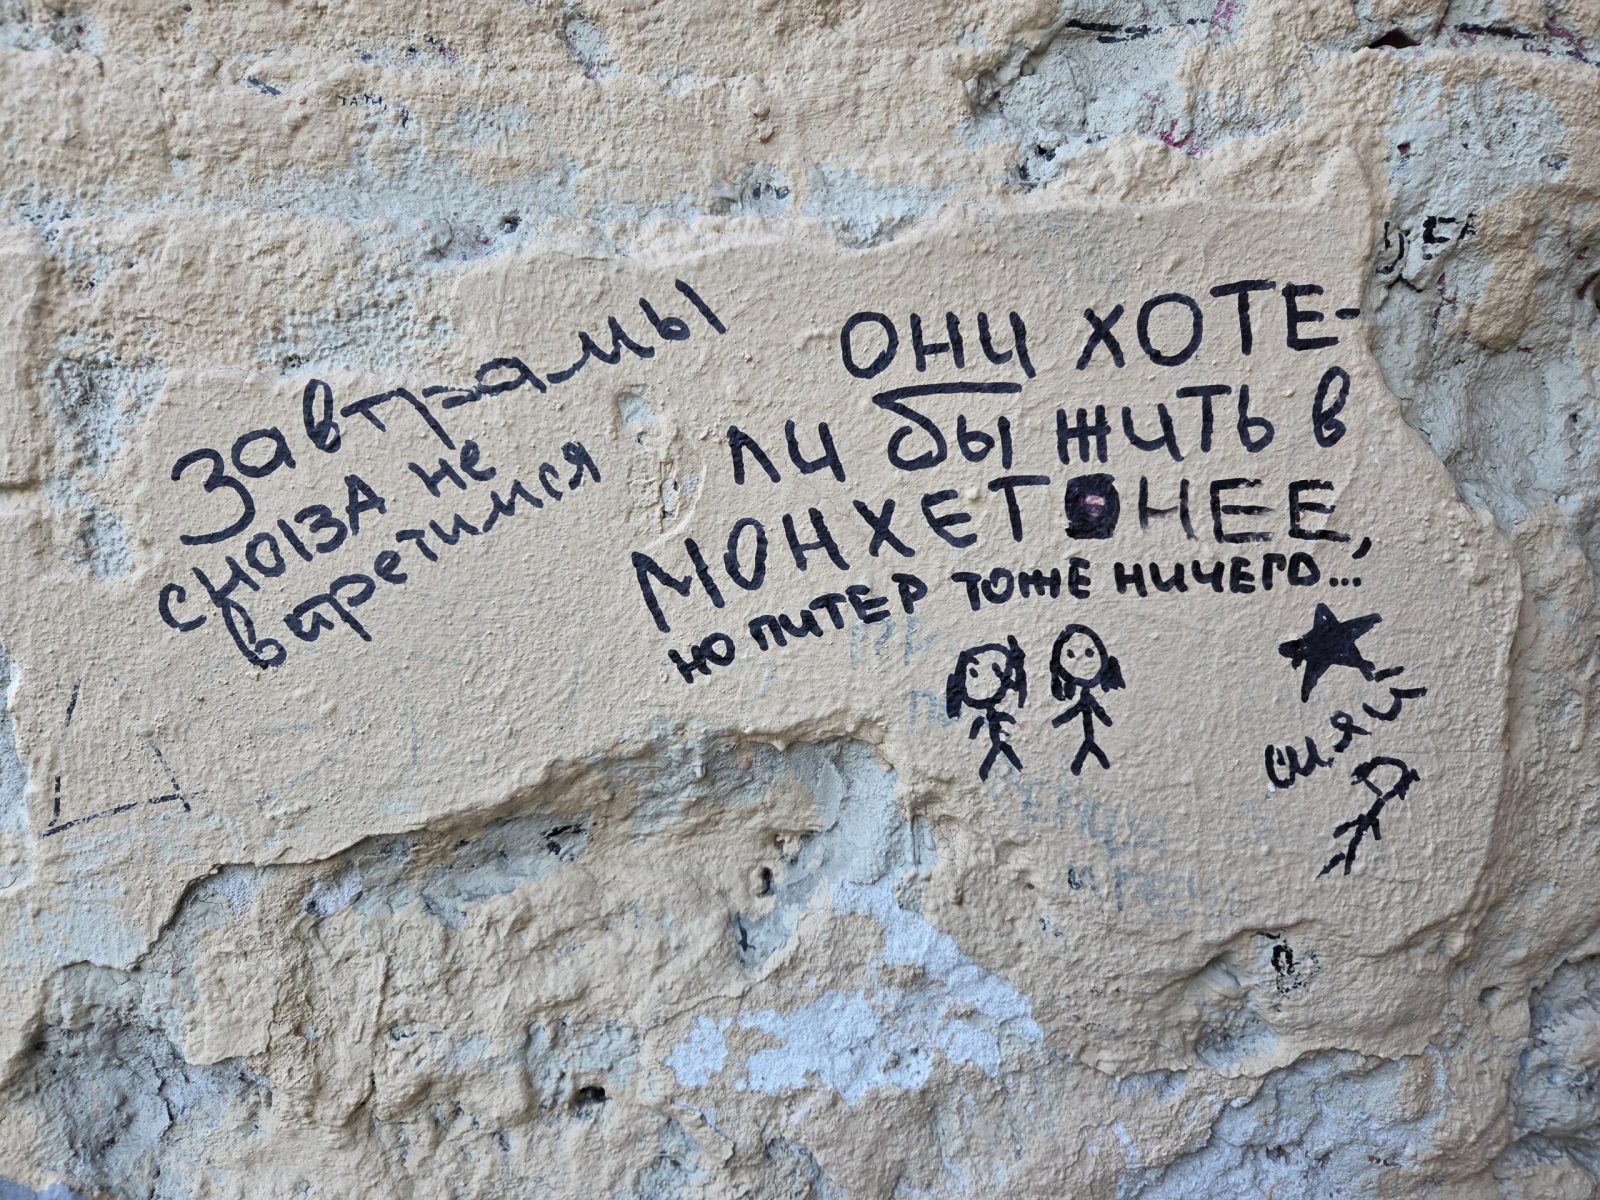 завтра мы
снова не
встретимся
ОНИ ХОТЕ-
ЛИ БЫ ЖИТЬ В
МОНХЕТОНЕЕ,
НО ПИТЕР ТОЖЕ НИЧЕГО...